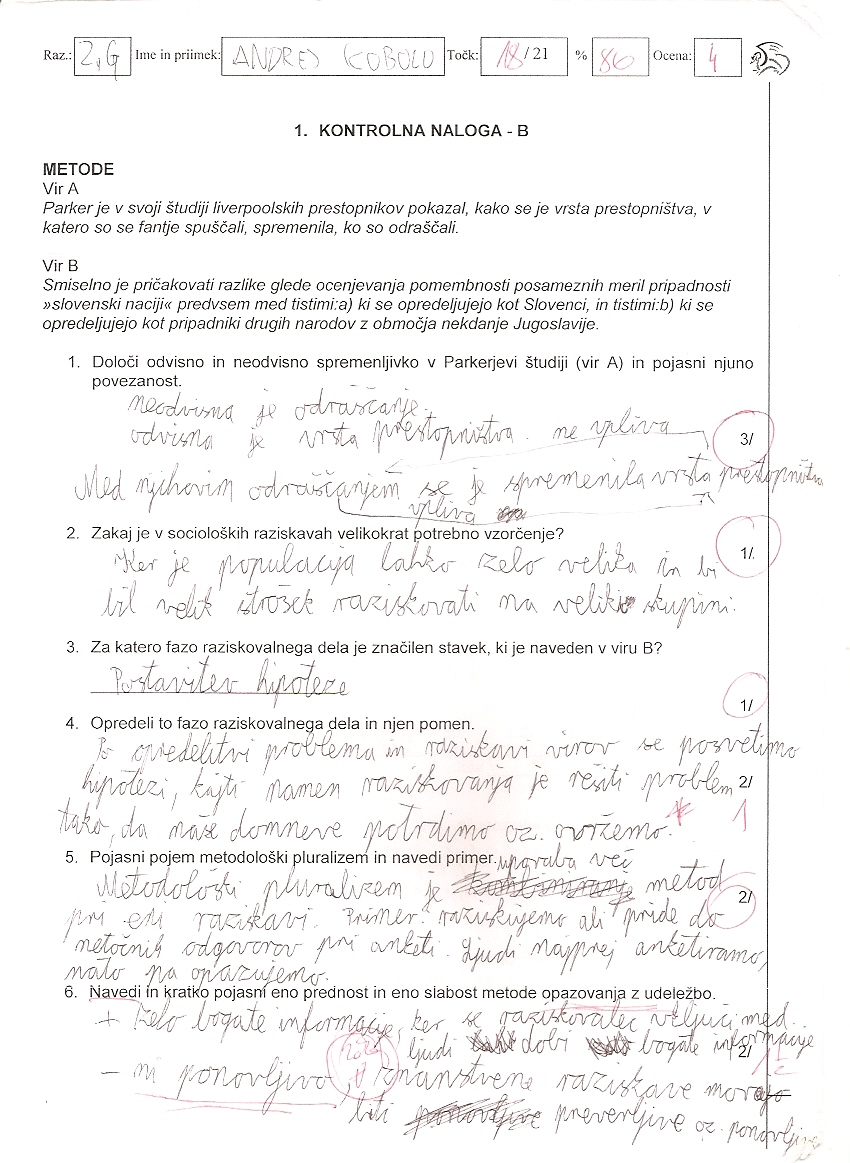 Raz.: 2.G Ime in priimek: ANDREJ KOBOLU Točk: 18 / 21 % 86 Ocena: 4
1. KONTROLNA NALOGA - B
METODE
Vir A
Parker je v svoji študiji liverpoolskih prestopnikov pokazal, kako se je vrsta prestopništva, v
katero so se fantje spuščali, spremenila, ko so odraščali.
Vir B
Smiselno je pričakovati razlike glede ocenjevanja pomembnosti posameznih meril pripadnosti
»slovenski naciji« predvsem med tistimi:a) ki se opredeljujejo kot Slovenci, in tistimi:b) ki se
opredeljujejo kot pripadniki drugih narodov z območja nekdanje Jugoslavije.
1. Določi odvisno in neodvisno spremenljivko v Parkerjevi študiji (vir A) in pojasni njuno
povezanost.
neodvisna je odraščanje.
odvisna je vrsta prestopništva. ne vpliva
3/
Med njihovim odraščanjem se je spremenila vrsta prestopništva
vpliva
2. Zakaj je v socioloških raziskavah velikokrat potrebno vzorčenje?
1/
Ker je populacija lahko zelo velika in bi
bil velik strošek raziskovati na veliki skupini.
3. Za katero fazo raziskovalnega dela je značilen stavek, ki je naveden v viru B?
Postavitev hipoteze
1/
4. Opredeli to fazo raziskovalnega dela in njen pomen.
Po opredelitvi problema in raziskavi virov se posvetimo
hipotezi, kajti namen raziskovanja je rešiti problem 2/
tako, da naše domneve potrdimo oz. ovržemo. * 1
5. Pojasni pojem metodološki pluralizem in navedi primer. uporaba več
Metodološki pluralizem je metod
2/
pri eni raziskavi. Primer: raziskujemo ali pride do
netočnih odgovorov pri anketi. Ljudi najprej anketiramo,
nato pa opazujemo.
6. Navedi in kratko pojasni eno prednost in eno slabost metode opazovanja z udeležbo.
+ Zelo bogate informacije, ker se raziskovalec vključi med
ljudi dobi bogate informacije
2/
- ni ponovljivo, znanstvene raziskave morajo
biti preverljive oz. ponovljive